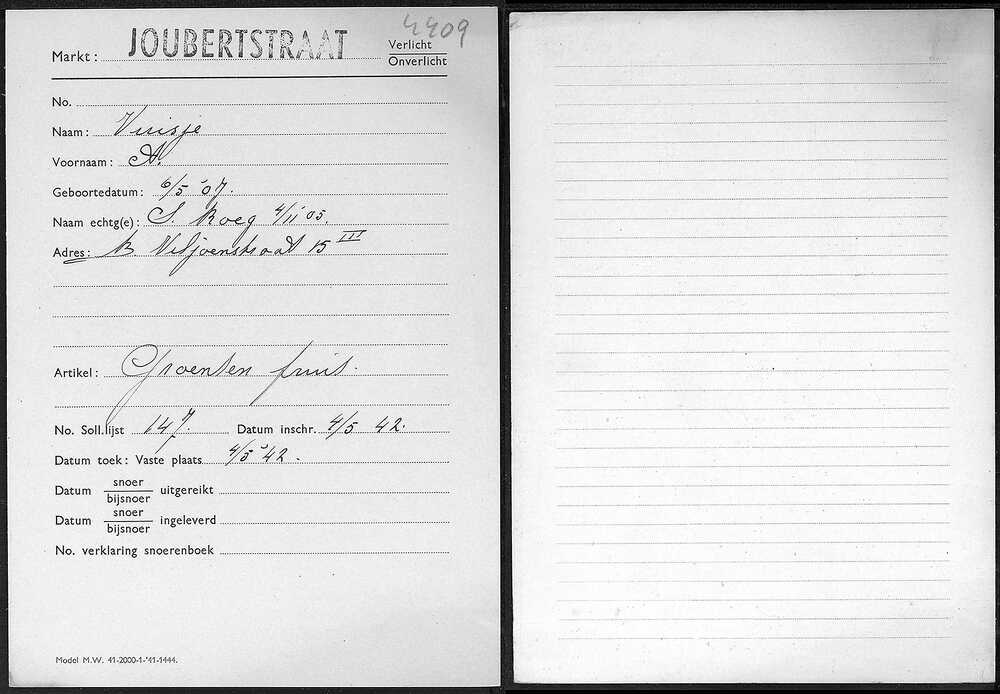 4409
Markt: JOUBERTSTRAAT Verlicht
Onverlicht
No.
Naam: Vuisje
Voornaam: A.
Geboortedatum: 6/5 '07.
Naam echtg(e): S. Koeg 4/11 '05.
Adres: B. Viljoenstraat 15 III
Artikel: Groenten fruit.
No. Soll. lijst 147. Datum inschr. 4/5 42.
Datum toek: Vaste plaats 4/5 '42.
Datum snoer
bijsnoer uitgereikt
Datum snoer
bijsnoer ingeleverd
No. verklaring snoerenboek
Model M.W. 41-2000-1-'41-1444.